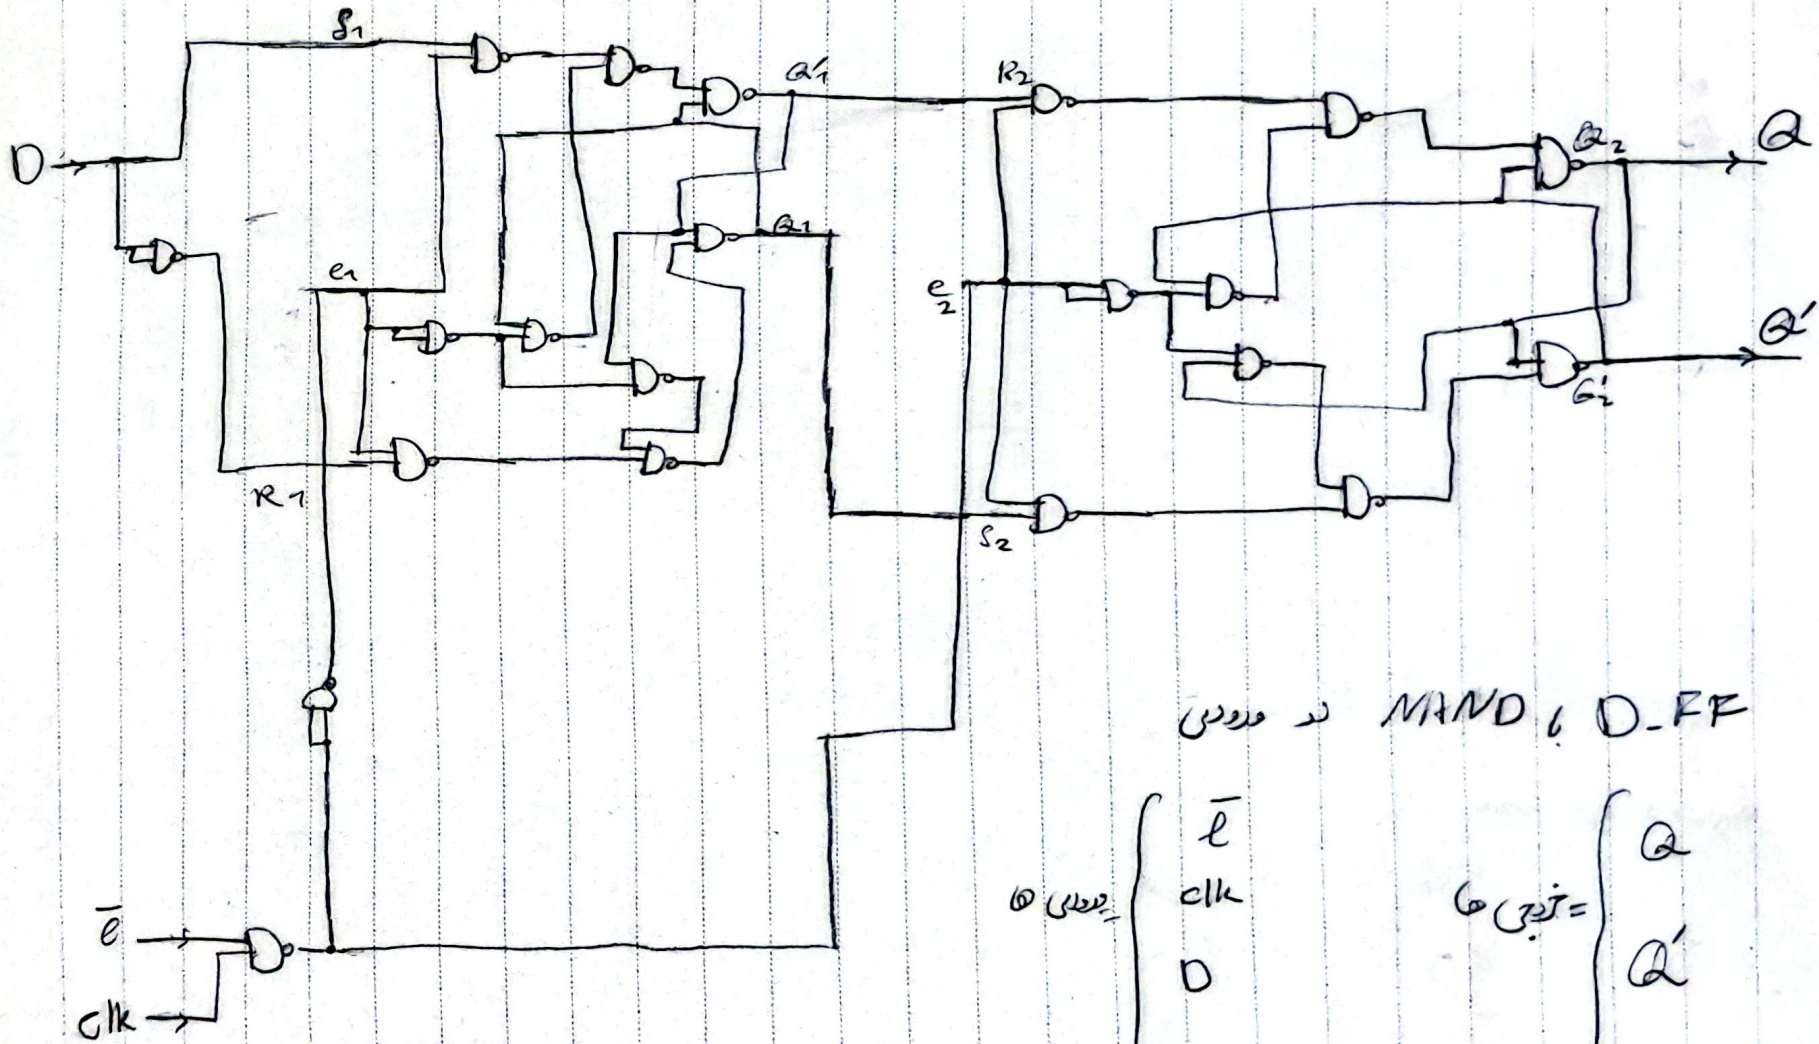 S1
Q'1
R2
D
Q2
Q
Q1
e1
e2
Q'
Q'2
R1
S2
D-FF با NAND دو ورودی
ē
Q
ورودی ها = clk
خروجی ها =
D
Q'
ē
clk